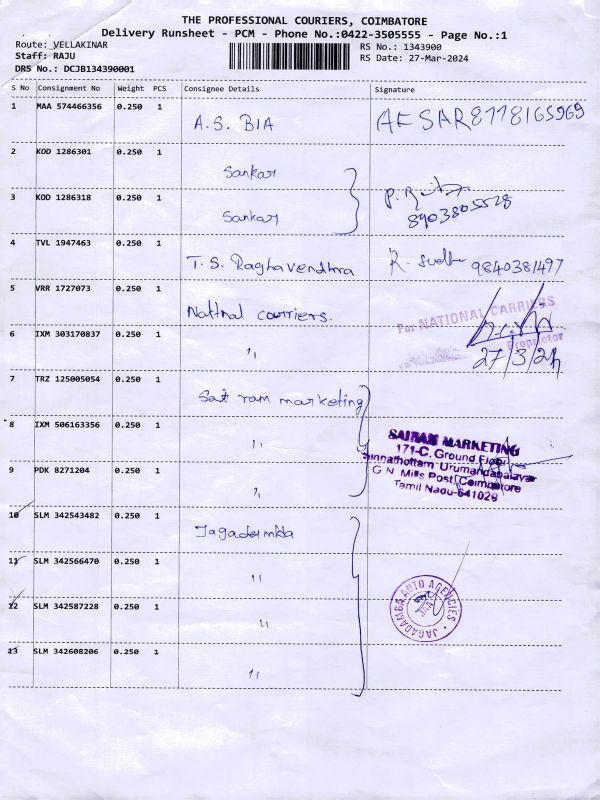 THE PROFESSIONAL COURIERS, COIMBATORE
Delivery Runsheet - PCM - Phone No.:0422-3505555 - Page No.:1
Route: VELLAKINAR
Staff: RAJU
DRS No.: DCJB134390001
RS No.: 1343900
RS Date: 27-Mar-2024
S No Consignment No Weight PCS Consignee Details Signature
1 MAA 574466356 0.250 1 A.S. BIA AESAR8778165969
2 KOD 1286301 0.250 1 Sankar
3 KOD 1286318 0.250 1 Sankar P. 8903805528
4 TVL 1947463 0.250 1 T.S. Raghavendhra R. Sudha 9840381497
5 VRR 1727073 0.250 1 National couriers. For NATIONAL CARRIERS
Proprietor
6 IXM 303170837 0.250 1 " 27/3/24
7 TRZ 125005054 0.250 1 Sai ram marketing
8 IXM 506163356 0.250 1 "
SAIRAM MARKETING
171-C, Ground Floor
Urumandapalayam
G.N. Mills Post, Coimbatore
Tamil Nadu-641029
9 PDK 8271204 0.250 1 "
10 SLM 342543482 0.250 1 Jagadermba
11 SLM 342566470 0.250 1 "
12 SLM 342587228 0.250 1 " JAGADAMBA AUTO AGENCIES
13 SLM 342608206 0.250 1 "